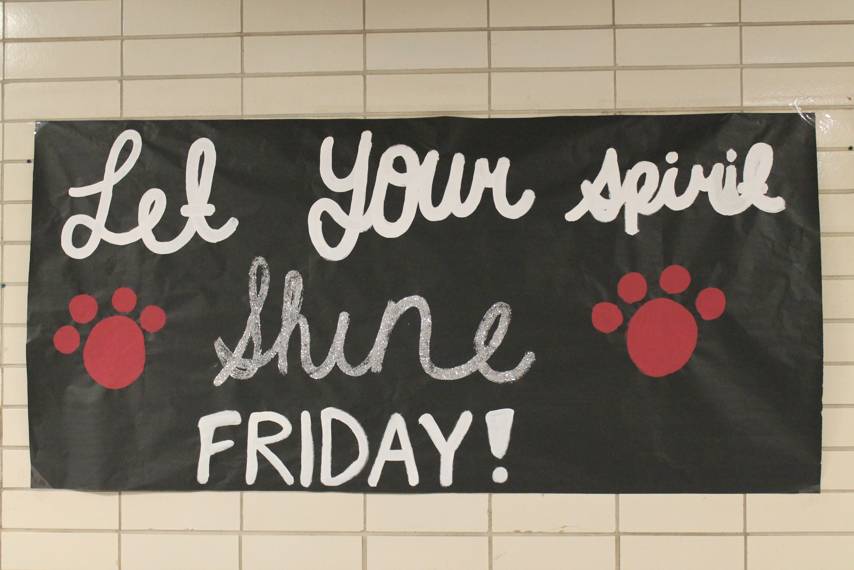 Let your spirit
Shine
FRIDAY!